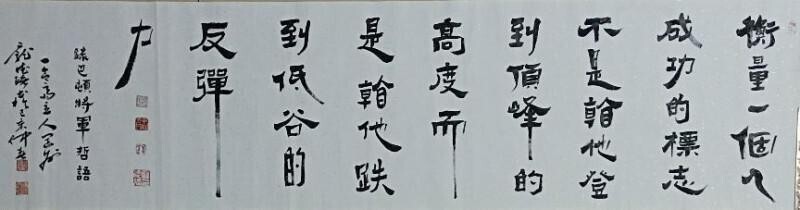 衡量一個人
成功的標志
不是看他登
到頂峰的
高度而
是看他跌
到低谷的
反彈
力
錄巴頓將軍哲語
主人